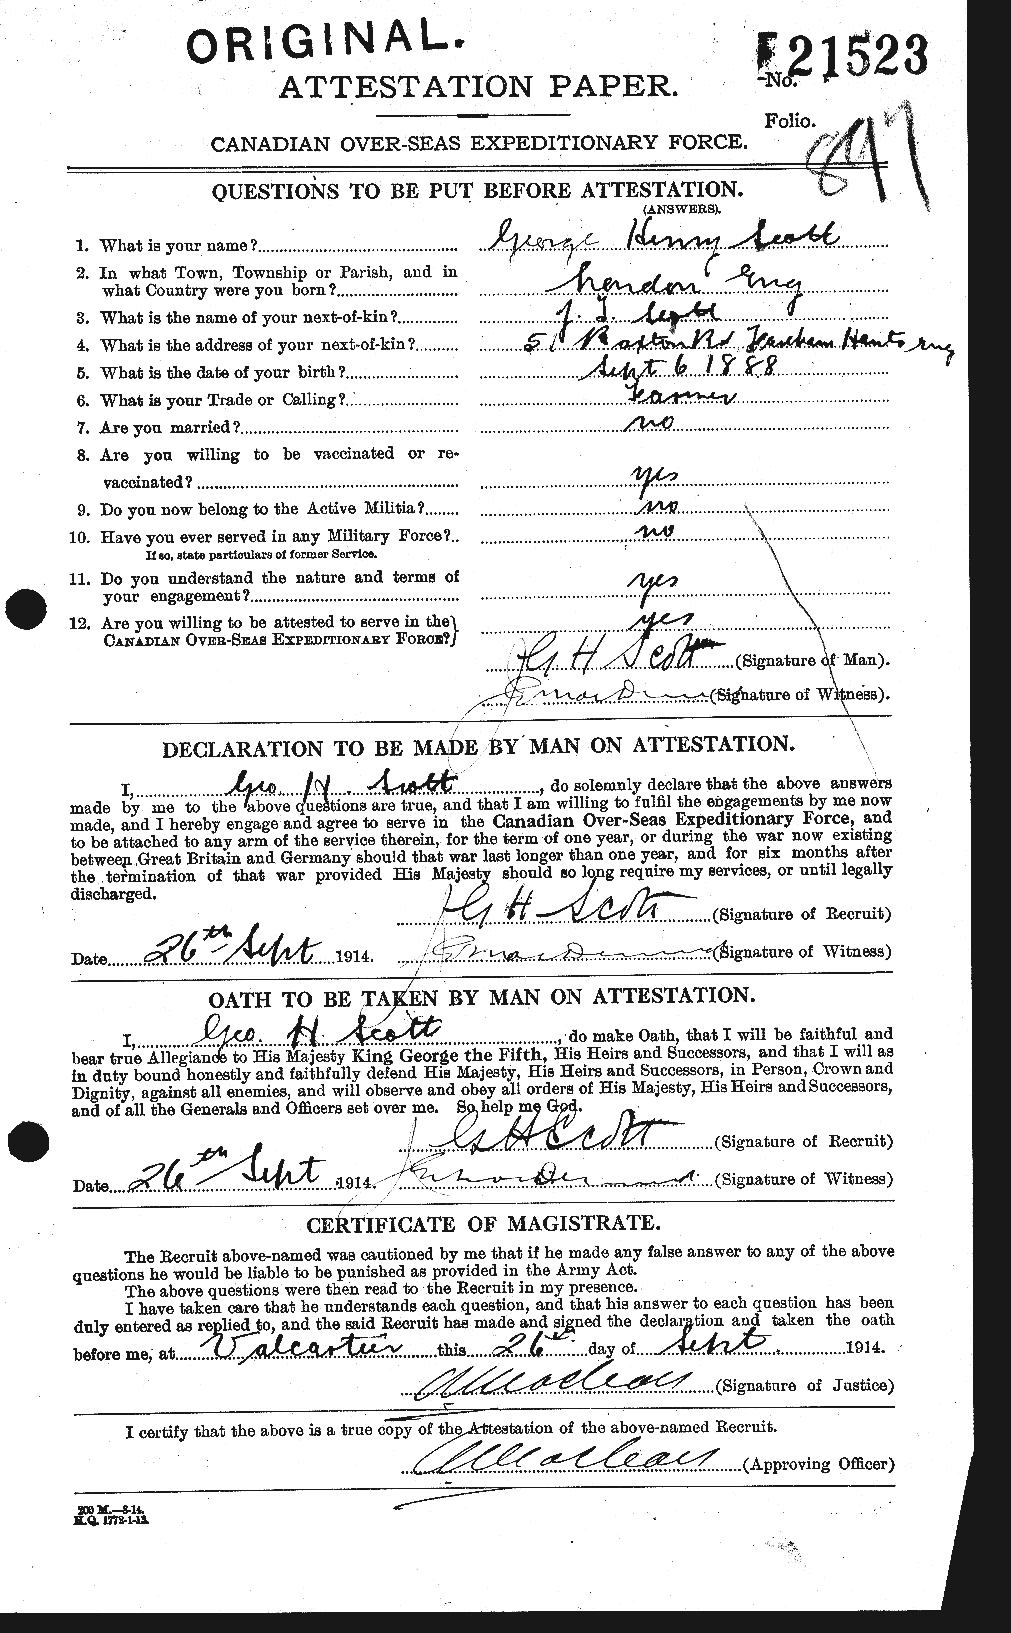 ORIGINAL.
ATTESTATION PAPER.
No. 21523
Folio. 847
CANADIAN OVER-SEAS EXPEDITIONARY FORCE.
QUESTIONS TO BE PUT BEFORE ATTESTATION.
(ANSWERS).
1. What is your name? George Henry Scott
2. In what Town, Township or Parish, and in
what Country were you born? London Eng
3. What is the name of your next-of-kin? J. Scott
4. What is the address of your next-of-kin? 51 Rd Hants Eng
5. What is the date of your birth? Sept 6 1888
6. What is your Trade or Calling? Farmer
7. Are you married? no
8. Are you willing to be vaccinated or re-
vaccinated? yes
9. Do you now belong to the Active Militia? no
10. Have you ever served in any Military Force? no
If so, state particulars of former Service.
11. Do you understand the nature and terms of
your engagement? yes
12. Are you willing to be attested to serve in the
CANADIAN OVER-SEAS EXPEDITIONARY FORCE? yes
G H Scott (Signature of Man).
(Signature of Witness).
DECLARATION TO BE MADE BY MAN ON ATTESTATION.
I, Geo. H. Scott, do solemnly declare that the above answers
made by me to the above questions are true, and that I am willing to fulfil the engagements by me now
made, and I hereby engage and agree to serve in the Canadian Over-Seas Expeditionary Force, and
to be attached to any arm of the service therein, for the term of one year, or during the war now existing
between Great Britain and Germany should that war last longer than one year, and for six months after
the termination of that war provided His Majesty should so long require my services, or until legally
discharged.
G H Scott (Signature of Recruit)
Date 26th Sept 1914. (Signature of Witness)
OATH TO BE TAKEN BY MAN ON ATTESTATION.
I, Geo. H Scott, do make Oath, that I will be faithful and
bear true Allegiance to His Majesty King George the Fifth, His Heirs and Successors, and that I will as
in duty bound honestly and faithfully defend His Majesty, His Heirs and Successors, in Person, Crown and
Dignity, against all enemies, and will observe and obey all orders of His Majesty, His Heirs and Successors,
and of all the Generals and Officers set over me. So help me God.
G H Scott (Signature of Recruit)
Date 26th Sept 1914. (Signature of Witness)
CERTIFICATE OF MAGISTRATE.
The Recruit above-named was cautioned by me that if he made any false answer to any of the above
questions he would be liable to be punished as provided in the Army Act.
The above questions were then read to the Recruit in my presence.
I have taken care that he understands each question, and that his answer to each question has been
duly entered as replied to, and the said Recruit has made and signed the declaration and taken the oath
before me, at Valcartier this 26th day of Sept. 1914.
(Signature of Justice)
I certify that the above is a true copy of the Attestation of the above-named Recruit.
(Approving Officer)
200 M.—8-14.
H.Q. 1772-1-13.